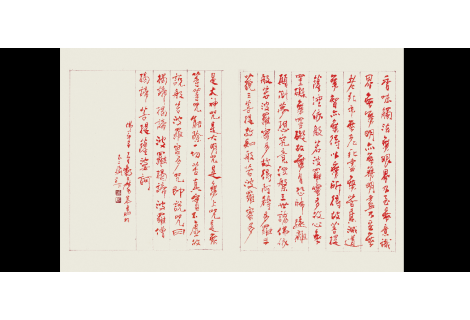 香味觸法無眼界乃至無意識
界無無明亦無無明盡乃至無
老死亦無老死盡無苦集滅道
無智亦無得以無所得故菩提
薩埵依般若波羅蜜多故心無
罣礙無罣礙故無有恐怖遠離
顛倒夢想究竟涅槃三世諸佛依
般若波羅蜜多故得阿耨多羅三
藐三菩提故知般若波羅蜜多
是大神咒是大明咒是無上咒是無
等等咒能除一切苦真實不虛故
說般若波羅蜜多咒即說咒曰
揭諦揭諦波羅揭諦波羅僧
揭諦菩提薩婆訶